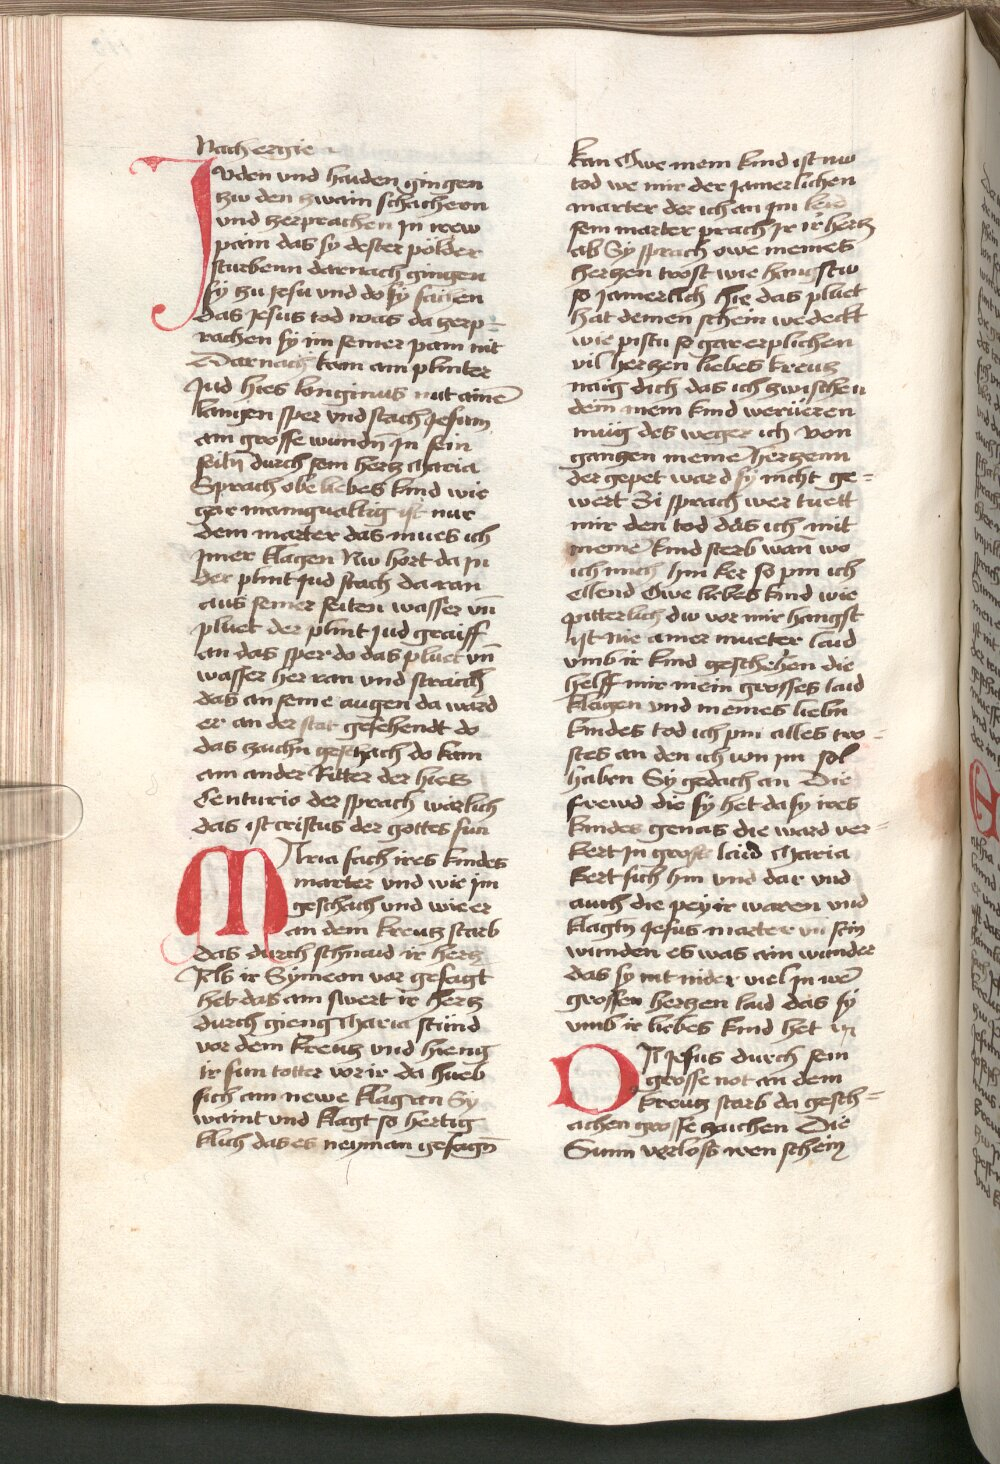 Nach ergie
Juden und haiden gingen
zw den zwain schachern
und zerprachen In irew
pain das sy dester pölder
sturbenn darnach gingen
sy zu Jesu vnd do sy sachen
das Jesus tod was da zerp=
rachen sy im seiner pain nit
Darnach kam ain plinter
Jud hies longinus mit aine
langen sper vnd stach Jesum
ain grosse wunden In sein
seitn durch sein hertz Maria
Sprach obe liebes kind wie
gar manigualtig ist nur
dein marter das mues ich
Imer klagen Nw hort da In
der plint Jud stach da ran
aus seiner seiten wasser vn
pluet der plint Jud graiff
an das sper do das pluet vn
wasser her ran und straich
das an seine augen da ward
er an der stat gesehendt do
das zaichn geschach do kam
ain ander Ritter der hies
Centurio der sprach warlich
das ist cristus der gottes sun
Maria sach ires kindes
marter und wie im
geschach und wie er
an dem kreutz starb
das durch schnaid ir hertz
Als ir Symeon vor gesagt
het das ain swert ir hertz
durch gieng Maria stünd
vor dem kreutz vnd hieng
ir sun totter vor ir da hueb
sich ain newe klag an Sy
waint und klagt so hertig
klich das es neyman gesagn
kan Owe mein kind ist nw
tod we mir der Jamerlichen
marter der ich an im leid
sein marter prach Ir ir hertz
ab Sy sprach owe meines
hertzen trost wie hangstw
so Jamerlich hie das pluet
hat deinen schein wedeckt
wie pistu so gar erplichen
vil hertzen liebes kreutz
naig dich das ich zwischen
dein mein kind werüeren
müg des weger ich von
gantzen meine hertzenn
der gepet ward sy nicht ge=
wert Si sprach wer tuett
mir den tod das ich mit
meine kind sterb wan wo
ich mich hin ker so pin ich
ellend Owe liebes kind wie
pitterlich dw vor mir hangst
ist nie ainer mueter laid
vmb ir kind geschehen die
helff mir mein grosses laid
klagen vnd meines liebn
kindes tod ich pin alles tro=
stes an den ich vin im sol
haben Sy gedach an Die
frewd die sy het da sy ires
kindes genas die ward ver=
kert In gross laid Maria
kert sich hin vnd dar vnd
auch die pey ir waren vnd
klagtn Jesus marter vn sein
wunden es was ain wunder
das sy nit nider viel In we
grossen hertzen laid das sy
vmb ir liebes kind het
Do Jesus durch sein
grosse not an dem
kreutz starb da gesch=
achen grosse zaichen Die
Sunn verlos iren schein